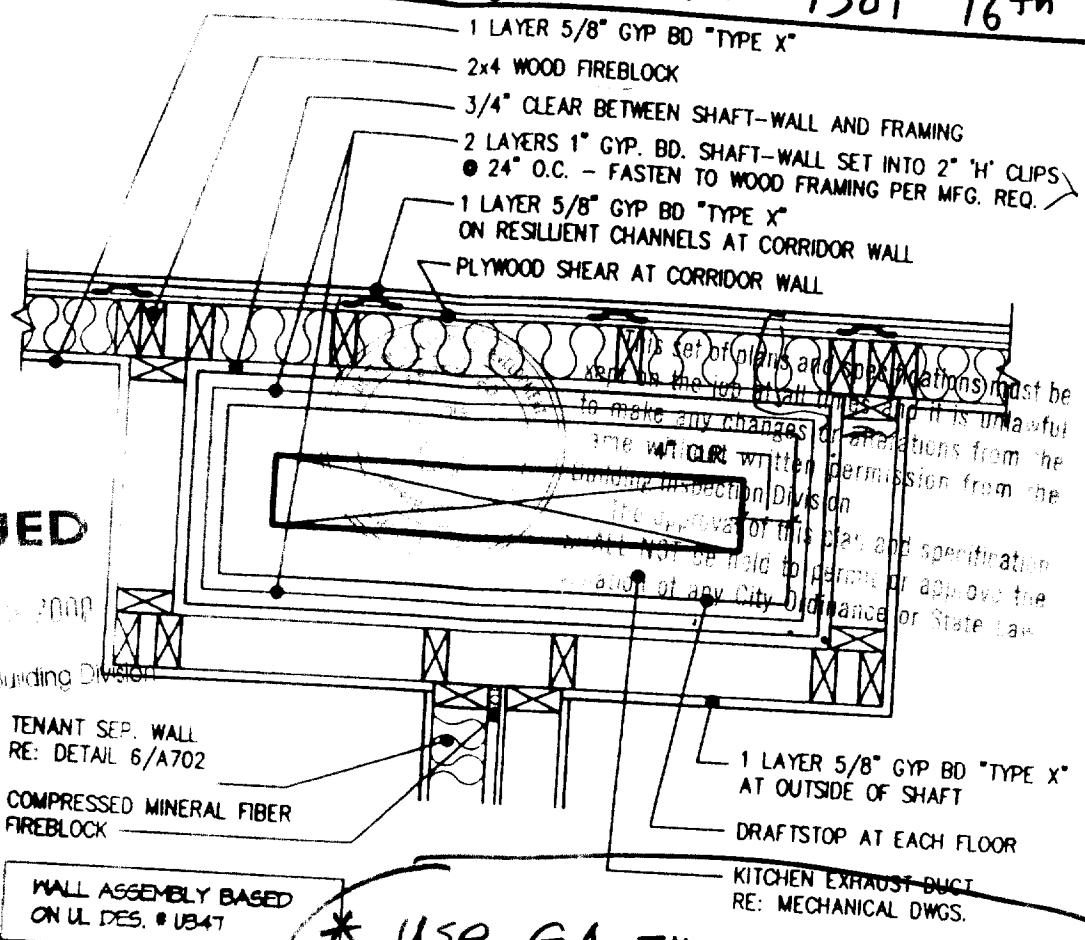 1301 16th
1 LAYER 5/8" GYP BD "TYPE X"
2x4 WOOD FIREBLOCK
3/4" CLEAR BETWEEN SHAFT-WALL AND FRAMING
2 LAYERS 1" GYP. BD. SHAFT-WALL SET INTO 2" 'H' CLIPS
@ 24" O.C. - FASTEN TO WOOD FRAMING PER MFG. REQ.
1 LAYER 5/8" GYP BD "TYPE X"
ON RESILLIENT CHANNELS AT CORRIDOR WALL
PLYWOOD SHEAR AT CORRIDOR WALL
This set of plans and specifications must be
kept on the job at all times and it is unlawful
to make any changes or alterations from the
written permission from the
Building Inspection Division
4" CLR.
The approval of this plan and specification
NOT be held to permit or approve the
of any City Ordinance or State Law
2000
Building Division
TENANT SEP. WALL
RE: DETAIL 6/A702
COMPRESSED MINERAL FIBER
FIREBLOCK
1 LAYER 5/8" GYP BD "TYPE X"
AT OUTSIDE OF SHAFT
DRAFTSTOP AT EACH FLOOR
KITCHEN EXHAUST DUCT
RE: MECHANICAL DWGS.
WALL ASSEMBLY BASED
ON UL DES. # U347
* USE GA